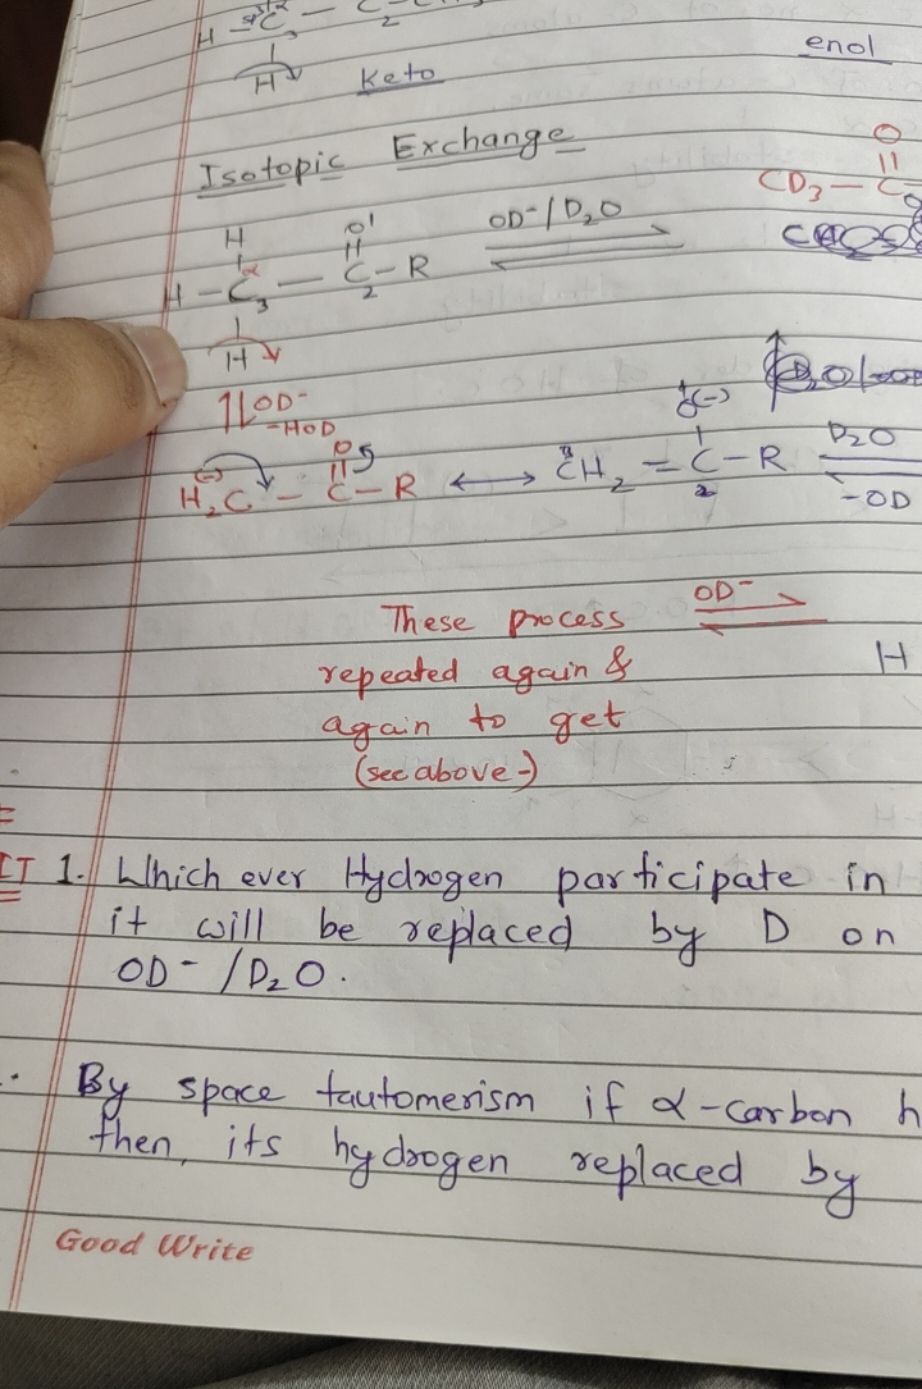 H - C - C
3 2
H
Keto
enol
Isotopic Exchange
O
||
CD3 - C
H O
H - C3 - C2 - R OD⁻/D₂O
α
H
OD⁻
-HOD
H₂C(-) - C(=O) - R ⟷ CH₂ = C - R D₂O
O(-)
2 -OD
These process OD⁻
repeated again & H
again to get
(see above-)
1. Which ever Hydrogen participate in
it will be replaced by D on
OD⁻/D₂O.
By space tautomerism if α-carbon h
then, its hydrogen replaced by
Good Write